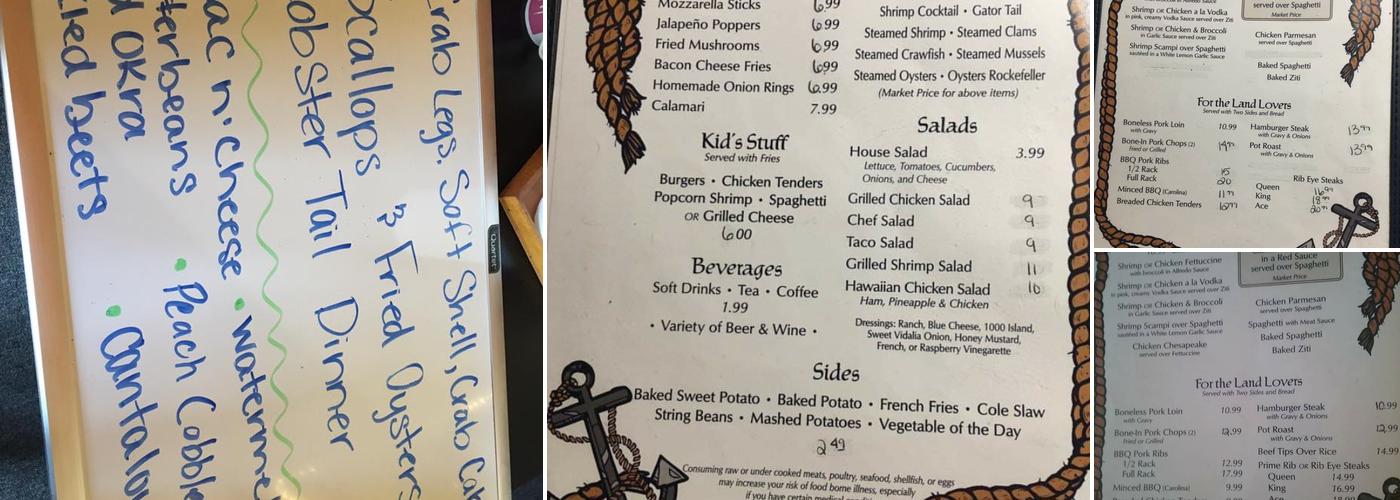 Crab Legs, Soft Shell, Crab
Scallops & Fried Oysters
Lobster Tail Dinner
mac n' cheese • waterme
butterbeans • Peach Cobble
OKRA • Cantalo
beets
Quartet
Mozzarella Sticks 6.99
Jalapeño Poppers 6.99
Fried Mushrooms 6.99
Bacon Cheese Fries 6.99
Homemade Onion Rings 6.99
Calamari 7.99
Kid's Stuff
Served with Fries
Burgers • Chicken Tenders
Popcorn Shrimp • Spaghetti
OR Grilled Cheese
6.00
Beverages
Soft Drinks • Tea • Coffee
1.99
• Variety of Beer & Wine •
Shrimp Cocktail • Gator Tail
Steamed Shrimp • Steamed Clams
Steamed Crawfish • Steamed Mussels
Steamed Oysters • Oysters Rockefeller
(Market Price for above items)
Salads
House Salad 3.99
Lettuce, Tomatoes, Cucumbers,
Onions, and Cheese
Grilled Chicken Salad 9
Chef Salad 9
Taco Salad 9
Grilled Shrimp Salad 11
Hawaiian Chicken Salad 10
Ham, Pineapple & Chicken
Dressings: Ranch, Blue Cheese, 1000 Island,
Sweet Vidalia Onion, Honey Mustard,
French, or Raspberry Vinegarette
Sides
Baked Sweet Potato • Baked Potato • French Fries • Cole Slaw
String Beans • Mashed Potatoes • Vegetable of the Day
2.49
Consuming raw or under cooked meats, poultry, seafood, shellfish, or eggs
may increase your risk of food borne illness, especially
if you have certain medical
Shrimp OR Chicken a la Vodka
in pink, creamy Vodka Sauce served over Ziti
Shrimp OR Chicken & Broccoli
in Garlic Sauce served over Ziti
Shrimp Scampi over Spaghetti
sautéed in a White Lemon Garlic Sauce
served over Spaghetti
Market Price
Chicken Parmesan
served over Spaghetti
Baked Spaghetti
Baked Ziti
For the Land Lovers
Served with Two Sides and Bread
Boneless Pork Loin 10.99
with Gravy
Bone-In Pork Chops (2) 14.99
Fried or Grilled
BBQ Pork Ribs
1/2 Rack 15
Full Rack 20
Minced BBQ (Carolina) 11.99
Breaded Chicken Tenders
Hamburger Steak 13.99
with Gravy & Onions
Pot Roast 13.99
with Gravy & Onions
Rib Eye Steaks
Queen 16.99
King 18.99
Ace 20.99
Shrimp OR Chicken Fettuccine
with broccoli in Alfredo Sauce
Shrimp OR Chicken a la Vodka
in pink, creamy Vodka Sauce served over Ziti
Shrimp OR Chicken & Broccoli
in Garlic Sauce served over Ziti
Shrimp Scampi over Spaghetti
sautéed in a White Lemon Garlic Sauce
Chicken Chesapeake
served over Fettuccine
in a Red Sauce
served over Spaghetti
Market Price
Chicken Parmesan
served over Spaghetti
Spaghetti with Meat Sauce
Baked Spaghetti
Baked Ziti
For the Land Lovers
Served with Two Sides and Bread
Boneless Pork Loin 10.99
with Gravy
Bone-In Pork Chops (2) 12.99
Fried or Grilled
BBQ Pork Ribs
1/2 Rack 12.99
Full Rack 17.99
Minced BBQ (Carolina) 9.99
Hamburger Steak 10.99
with Gravy & Onions
Pot Roast 12.99
with Gravy & Onions
Beef Tips Over Rice 14.99
Prime Rib OR Rib Eye Steaks
Queen 14.99
King 16.99